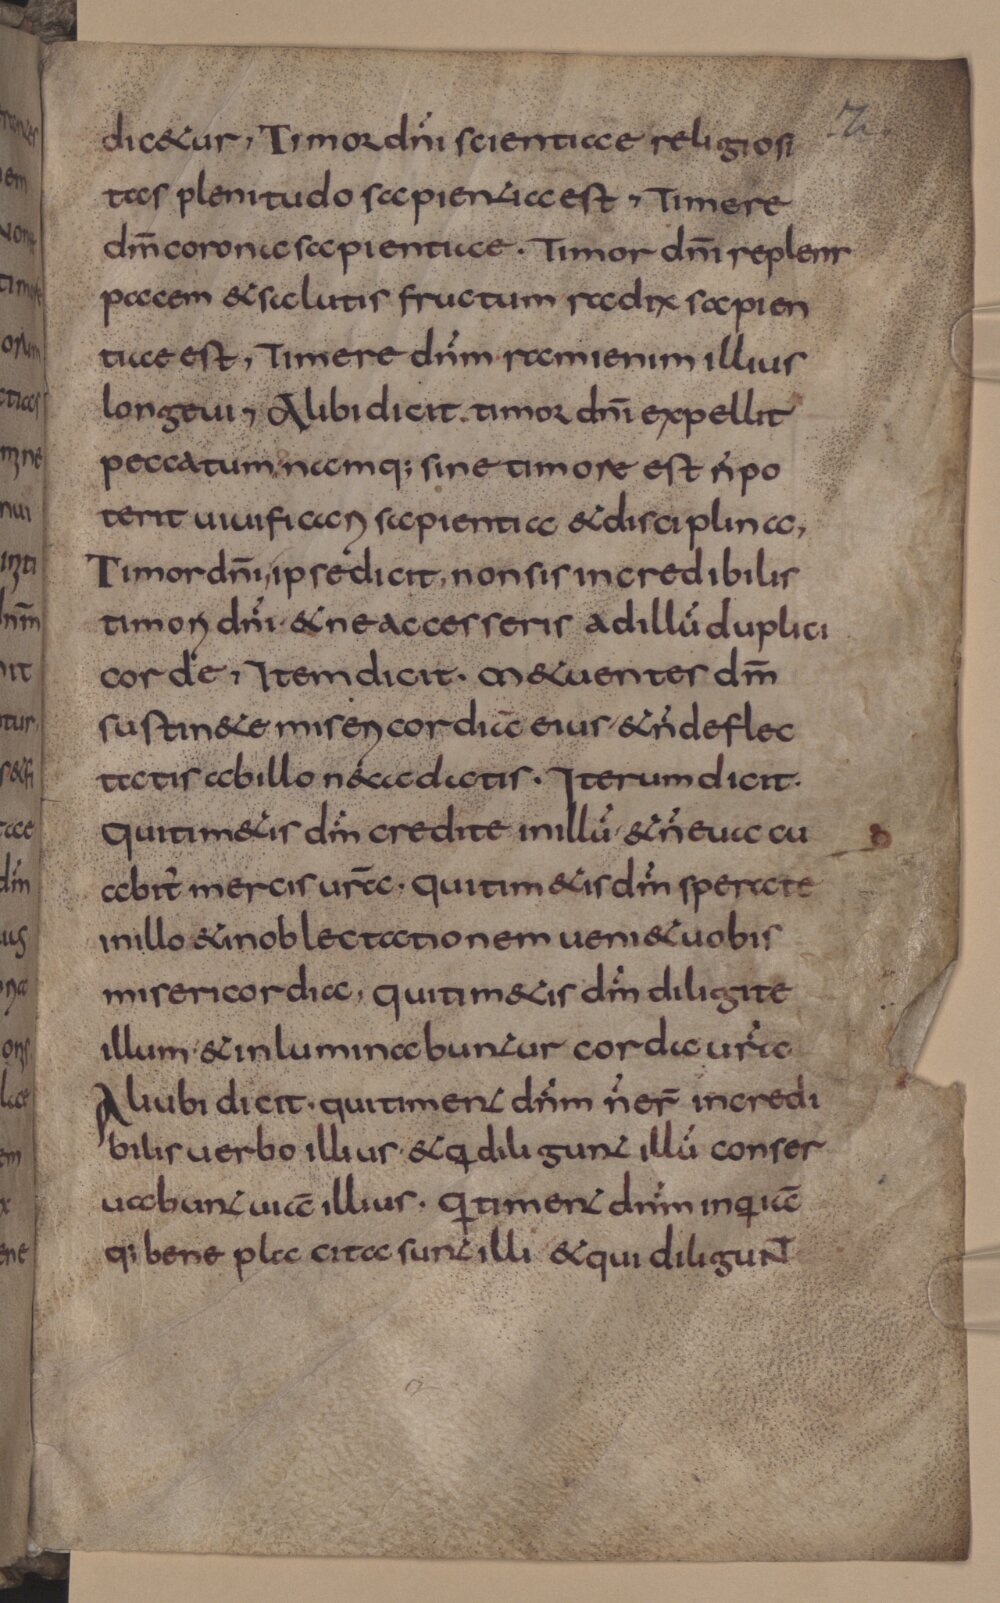 dic&ur, Timor dñi scientiae religiosi
tas plenitudo sapientia est, Timere
dm̄ corona sapientiae. Timor dm̄i replens
pacem & salutis fructum radix sapien
tiae est, Timere dñm rami enim illius
longeui, Alibi dicit. timor dñi expellit
peccatum nam q; sine timore est ñ po
terit uiuificari sapientia & disciplina,
Timor dñi, ipse dicit, non sis incredibilis
timori dñi & ne accesseris ad illū duplici
corde, Item dicit. M&uentes dm̄
sustin&e misericordiā eius & ñ deflec
tatis ab illo n& cadatis. Iterum dicit.
Qui tim&is dñm credite in illū & ñ euacu
abit̄ mercis ur̄a. Qui tim&is dñm sperate
in illo & in oblectationem ueni& uobis
misericordia, Qui tim&is dñm diligite
illum & inluminabuntur corda ur̄a
Aliubi dicit. qui timent dñm ñ er̄ incredi
bilis uerbo illius & q diligunt illū conser
uabunt uiā illius. Q timent dñm inq̇ꝛ̄
q; bene placita sunt illi & qui diligunt